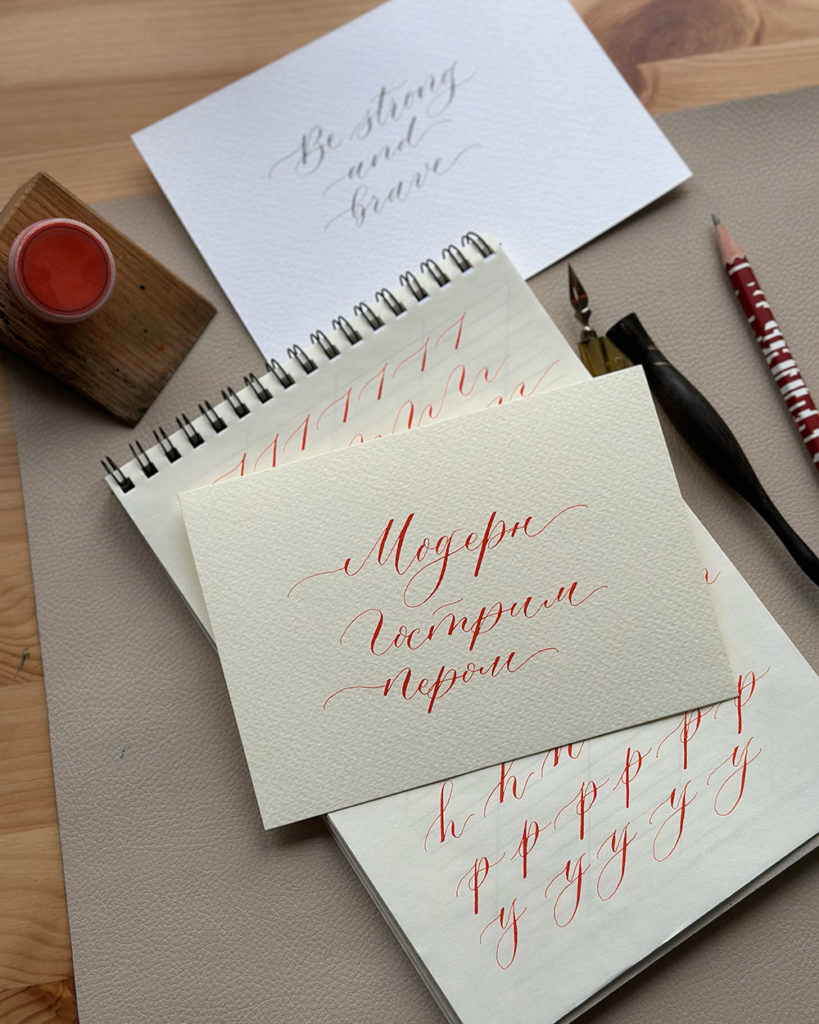 Be strong
and
brave
Модерн
Гострим
пером
h h h
p p p p p p
y y y y y